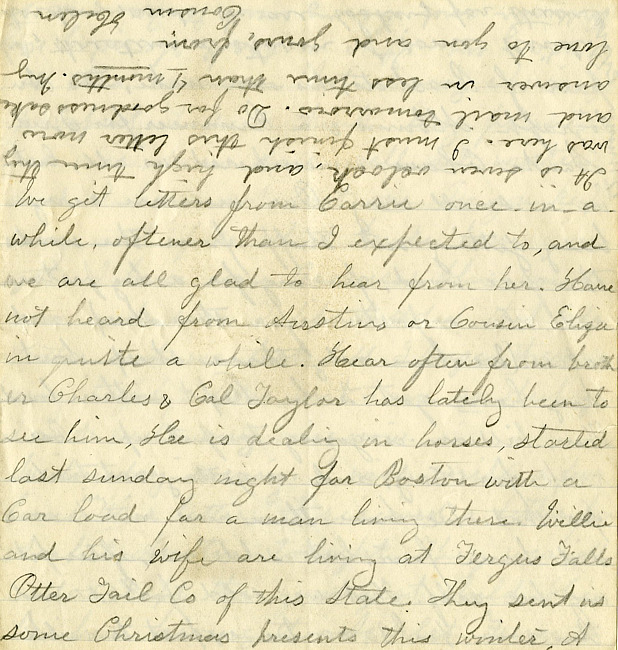 We get letters from Carrie once-in-a-
while, oftener than I expected to, and
we are all glad to hear from her. Have
not heard from Austins or Cousin Eliza
in quite a while. Hear often from broth
er Charles & Cal Taylor has lately been to
see him, He is dealing in horses, started
last sunday night for Boston with a
Car load for a man living there. Willie
and his wife are living at Fergus Falls
Otter Tail Co of this State. They sent us
some Christmas presents this winter, A
It is seven oclock, and high time this
was here. I must finish this letter now
and mail tomorrow. Do for goodness sake
answer in less time than 4 months. My
love to you and yours, from
Cousin Helen